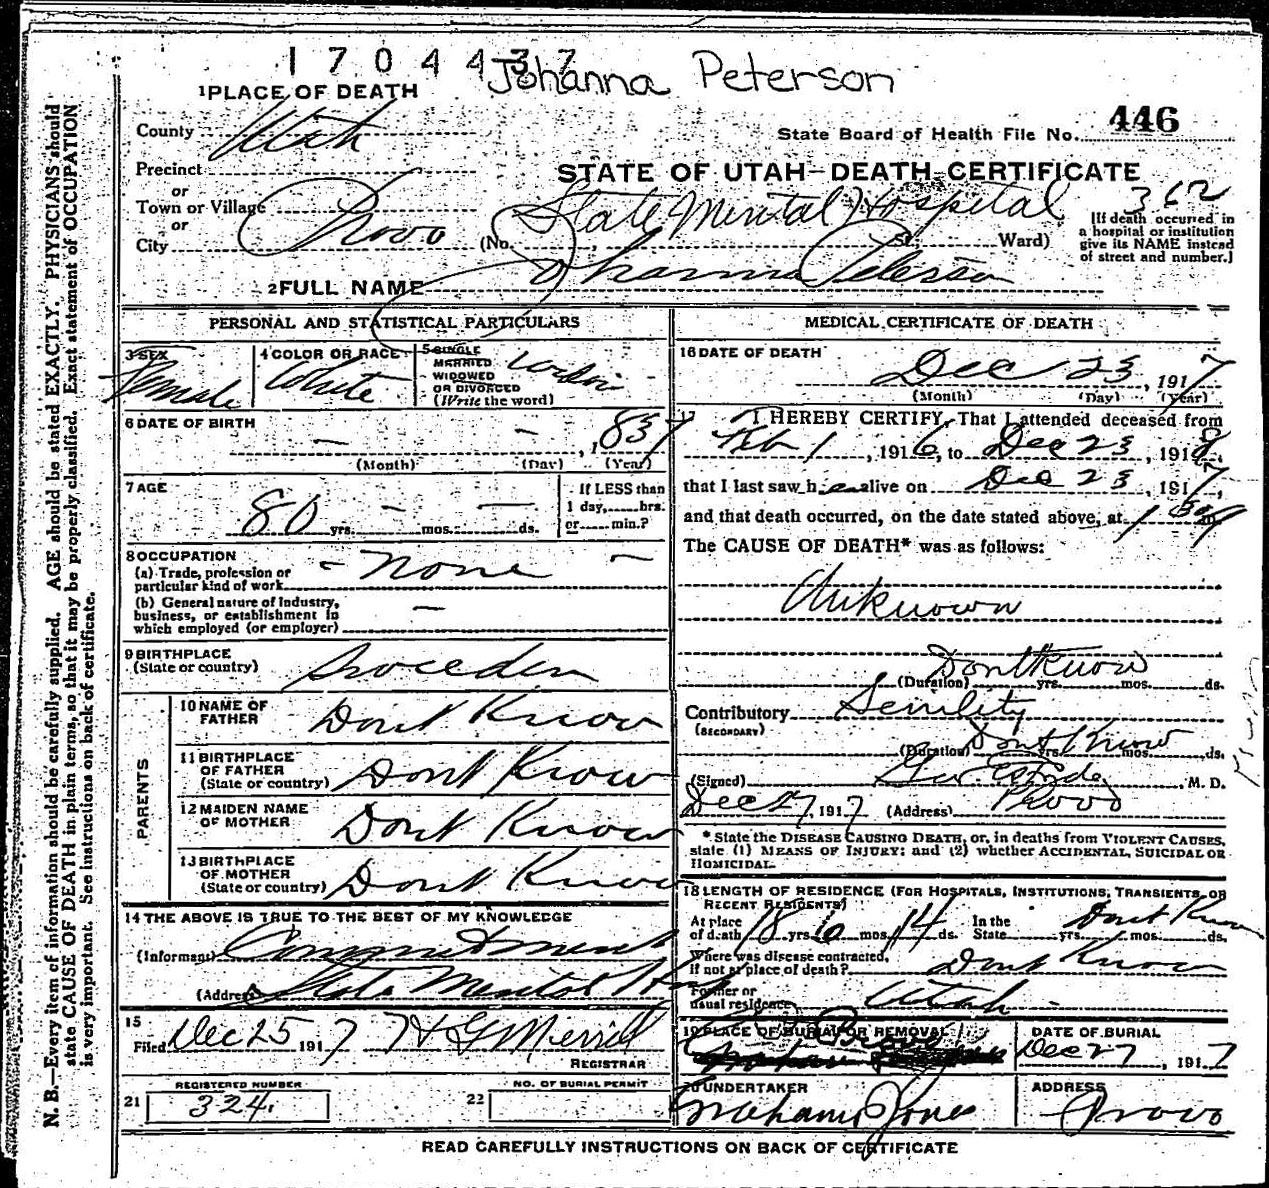 1704437
Johanna Peterson
1 PLACE OF DEATH
County Utah
State Board of Health File No. 446
Precinct
STATE OF UTAH—DEATH CERTIFICATE
or
Town or Village
362
or
City Provo (No. State Mental Hospital St. Ward)
[If death occurred in a hospital or institution give its NAME instead of street and number.]
2 FULL NAME Johanna Peterson
PERSONAL AND STATISTICAL PARTICULARS
3 SEX Female
4 COLOR OR RACE White
5 SINGLE
MARRIED
WIDOWED
OR DIVORCED
(Write the word)
6 DATE OF BIRTH — — , 837
(Month) (Day) (Year)
7 AGE
80 yrs. — mos. — ds.
If LESS than
1 day, hrs.
or min.?
8 OCCUPATION
(a) Trade, profession or
particular kind of work - None -
(b) General nature of industry,
business, or establishment in
which employed (or employer) —
9 BIRTHPLACE
(State or country) Sweden
PARENTS
10 NAME OF
FATHER Dont Know
11 BIRTHPLACE
OF FATHER
(State or country) Dont Know
12 MAIDEN NAME
OF MOTHER Dont Know
13 BIRTHPLACE
OF MOTHER
(State or country) Dont Know
14 THE ABOVE IS TRUE TO THE BEST OF MY KNOWLEDGE
(Informant) Commitment
(Address) State Mental Hos
15
Filed Dec 25 1917 H G Merrill
REGISTRAR
REGISTERED NUMBER
21 324.
NO. OF BURIAL PERMIT
22
MEDICAL CERTIFICATE OF DEATH
16 DATE OF DEATH
Dec 23, 1917
(Month) (Day) (Year)
17 I HEREBY CERTIFY, That I attended deceased from
Feb 1, 1916, to Dec 23, 191
that I last saw her alive on Dec 23, 1917,
and that death occurred, on the date stated above, at 1 m
The CAUSE OF DEATH* was as follows:
Unknown
Dont Know
(Duration) yrs. mos. ds.
Contributory Senility
(SECONDARY)
Dont Know
(Duration) yrs. mos. ds.
(Signed) Geo. M. D.
Dec 27, 1917 (Address) Provo
* State the DISEASE CAUSING DEATH, or, in deaths from VIOLENT CAUSES,
state (1) MEANS OF INJURY; and (2) whether ACCIDENTAL, SUICIDAL OR
HOMICIDAL.
18 LENGTH OF RESIDENCE (FOR HOSPITALS, INSTITUTIONS, TRANSIENTS, OR
RECENT RESIDENTS)
At place
of death 18 yrs. 10 mos. 14 ds. In the
State Dont Know yrs. mos. ds.
Where was disease contracted,
if not at place of death? Dont Know
Former or
usual residence Utah -
19 PLACE OF BURIAL OR REMOVAL
Provo
DATE OF BURIAL
Dec 27, 1917
20 UNDERTAKER
Graham Jones
ADDRESS
Provo
READ CAREFULLY INSTRUCTIONS ON BACK OF CERTIFICATE
N. B.—Every item of information should be carefully supplied. AGE should be stated EXACTLY. PHYSICIANS should
state CAUSE OF DEATH in plain terms, so that it may be properly classified. Exact statement of OCCUPATION
is very important. See instructions on back of certificate.